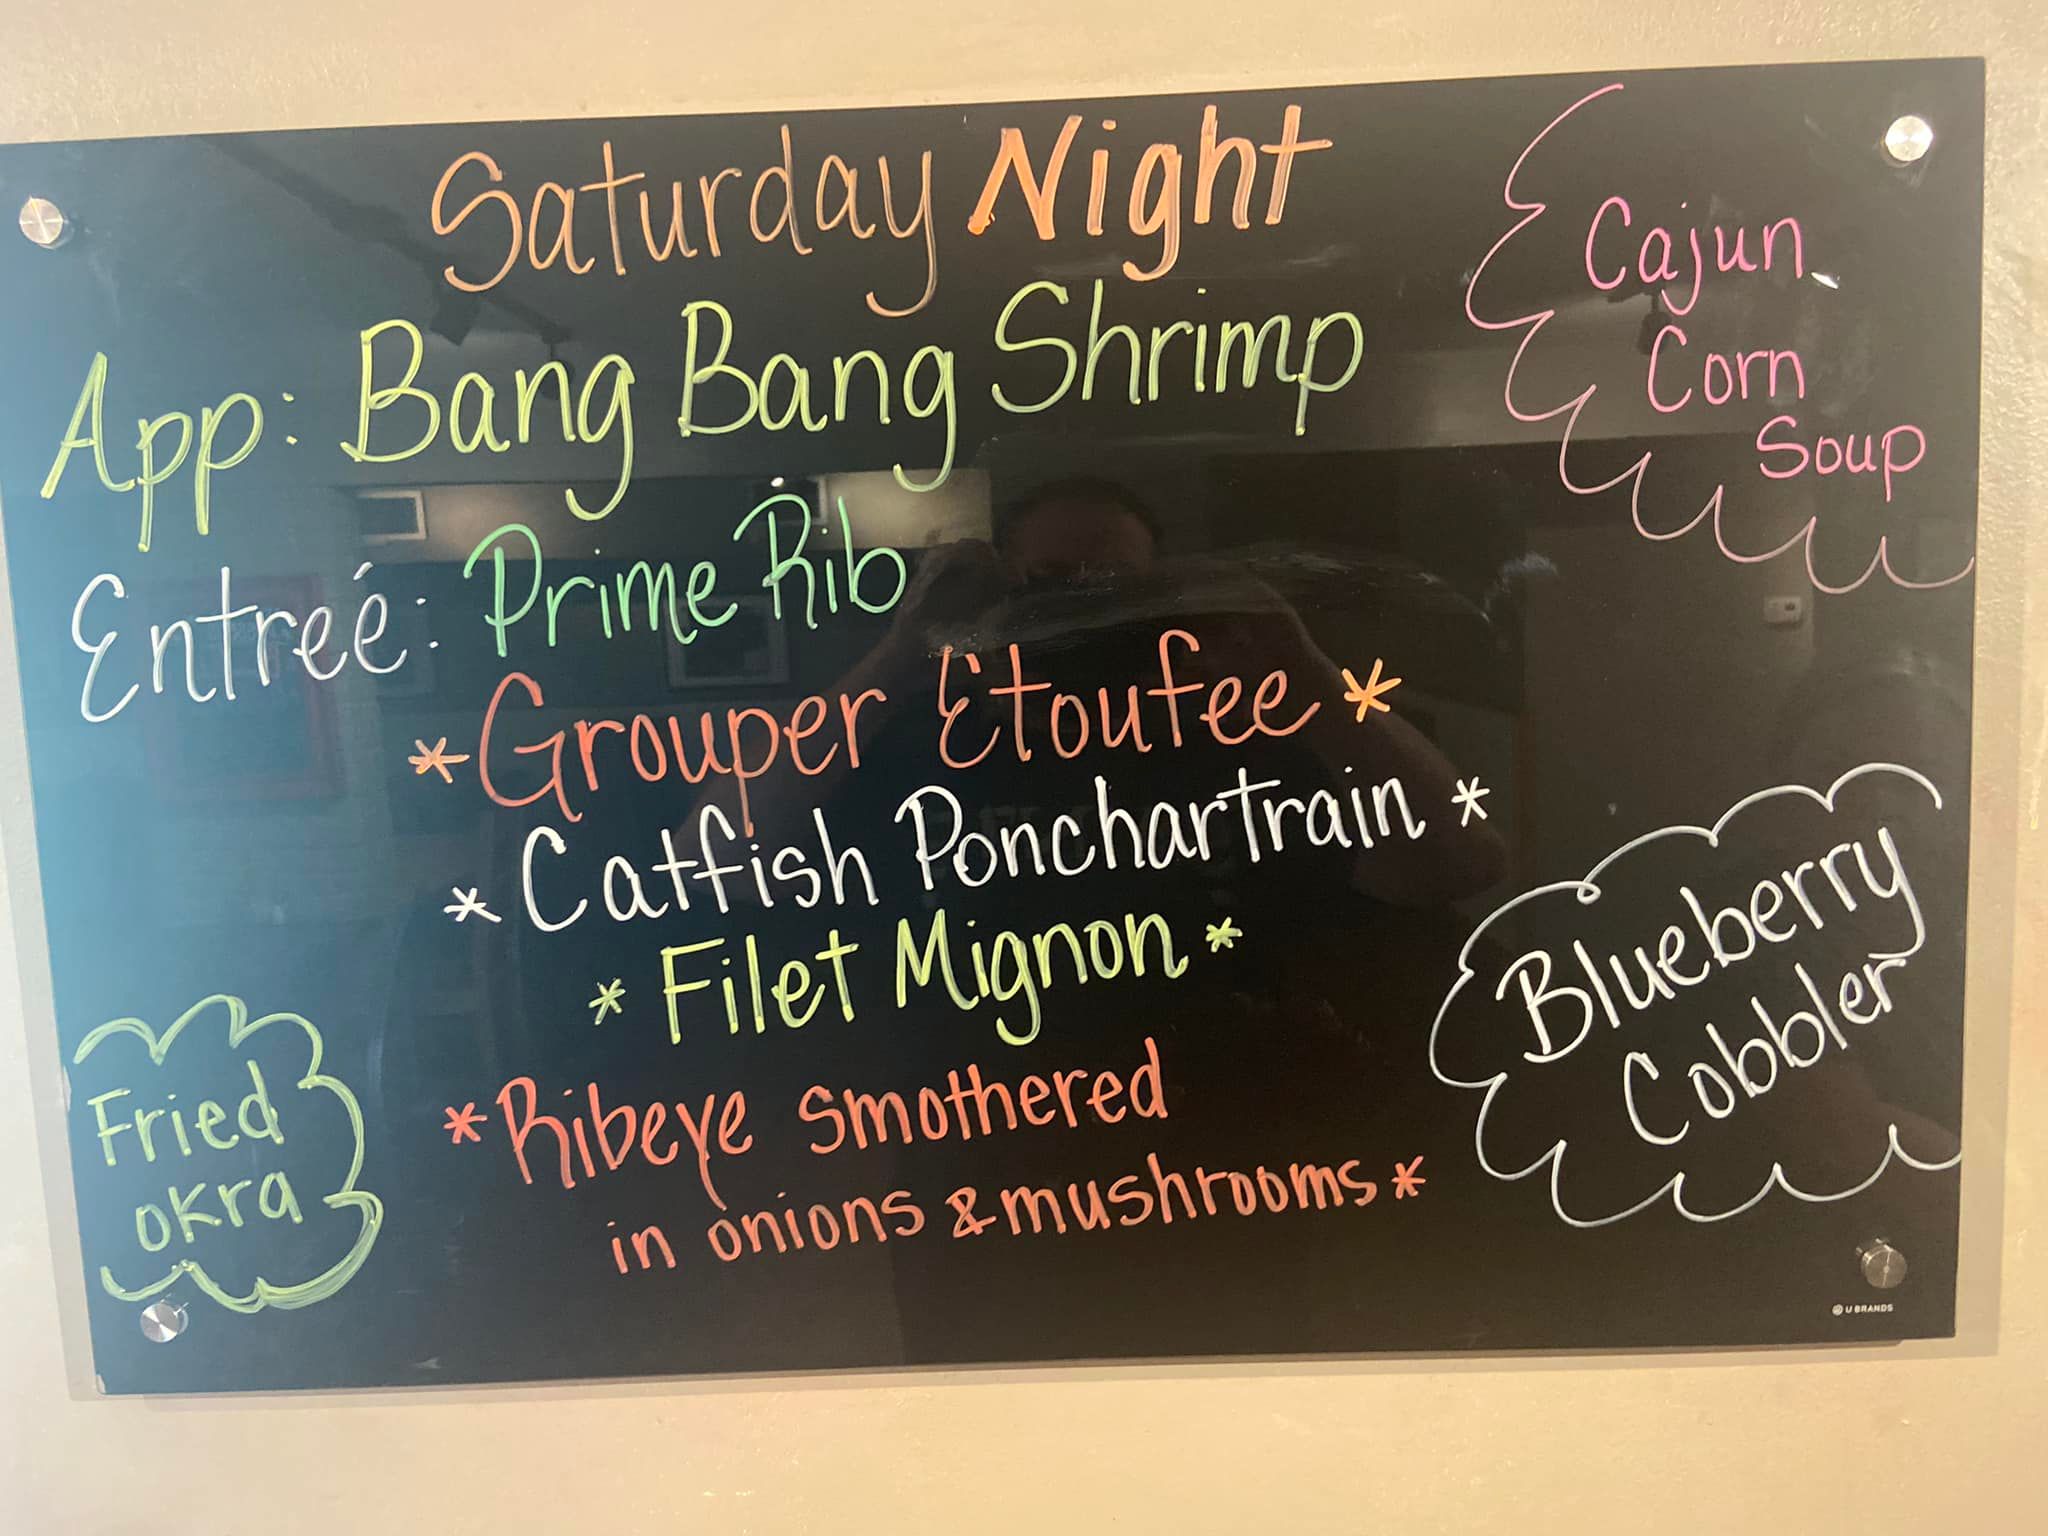 Saturday Night
App: Bang Bang Shrimp
Entreé: Prime Rib
*Grouper Etoufee*
*Catfish Ponchartrain*
*Filet Mignon*
*Ribeye smothered
in onions & mushrooms*
Cajun
Corn
Soup
Blueberry
Cobbler
Fried
okra
U BRANDS